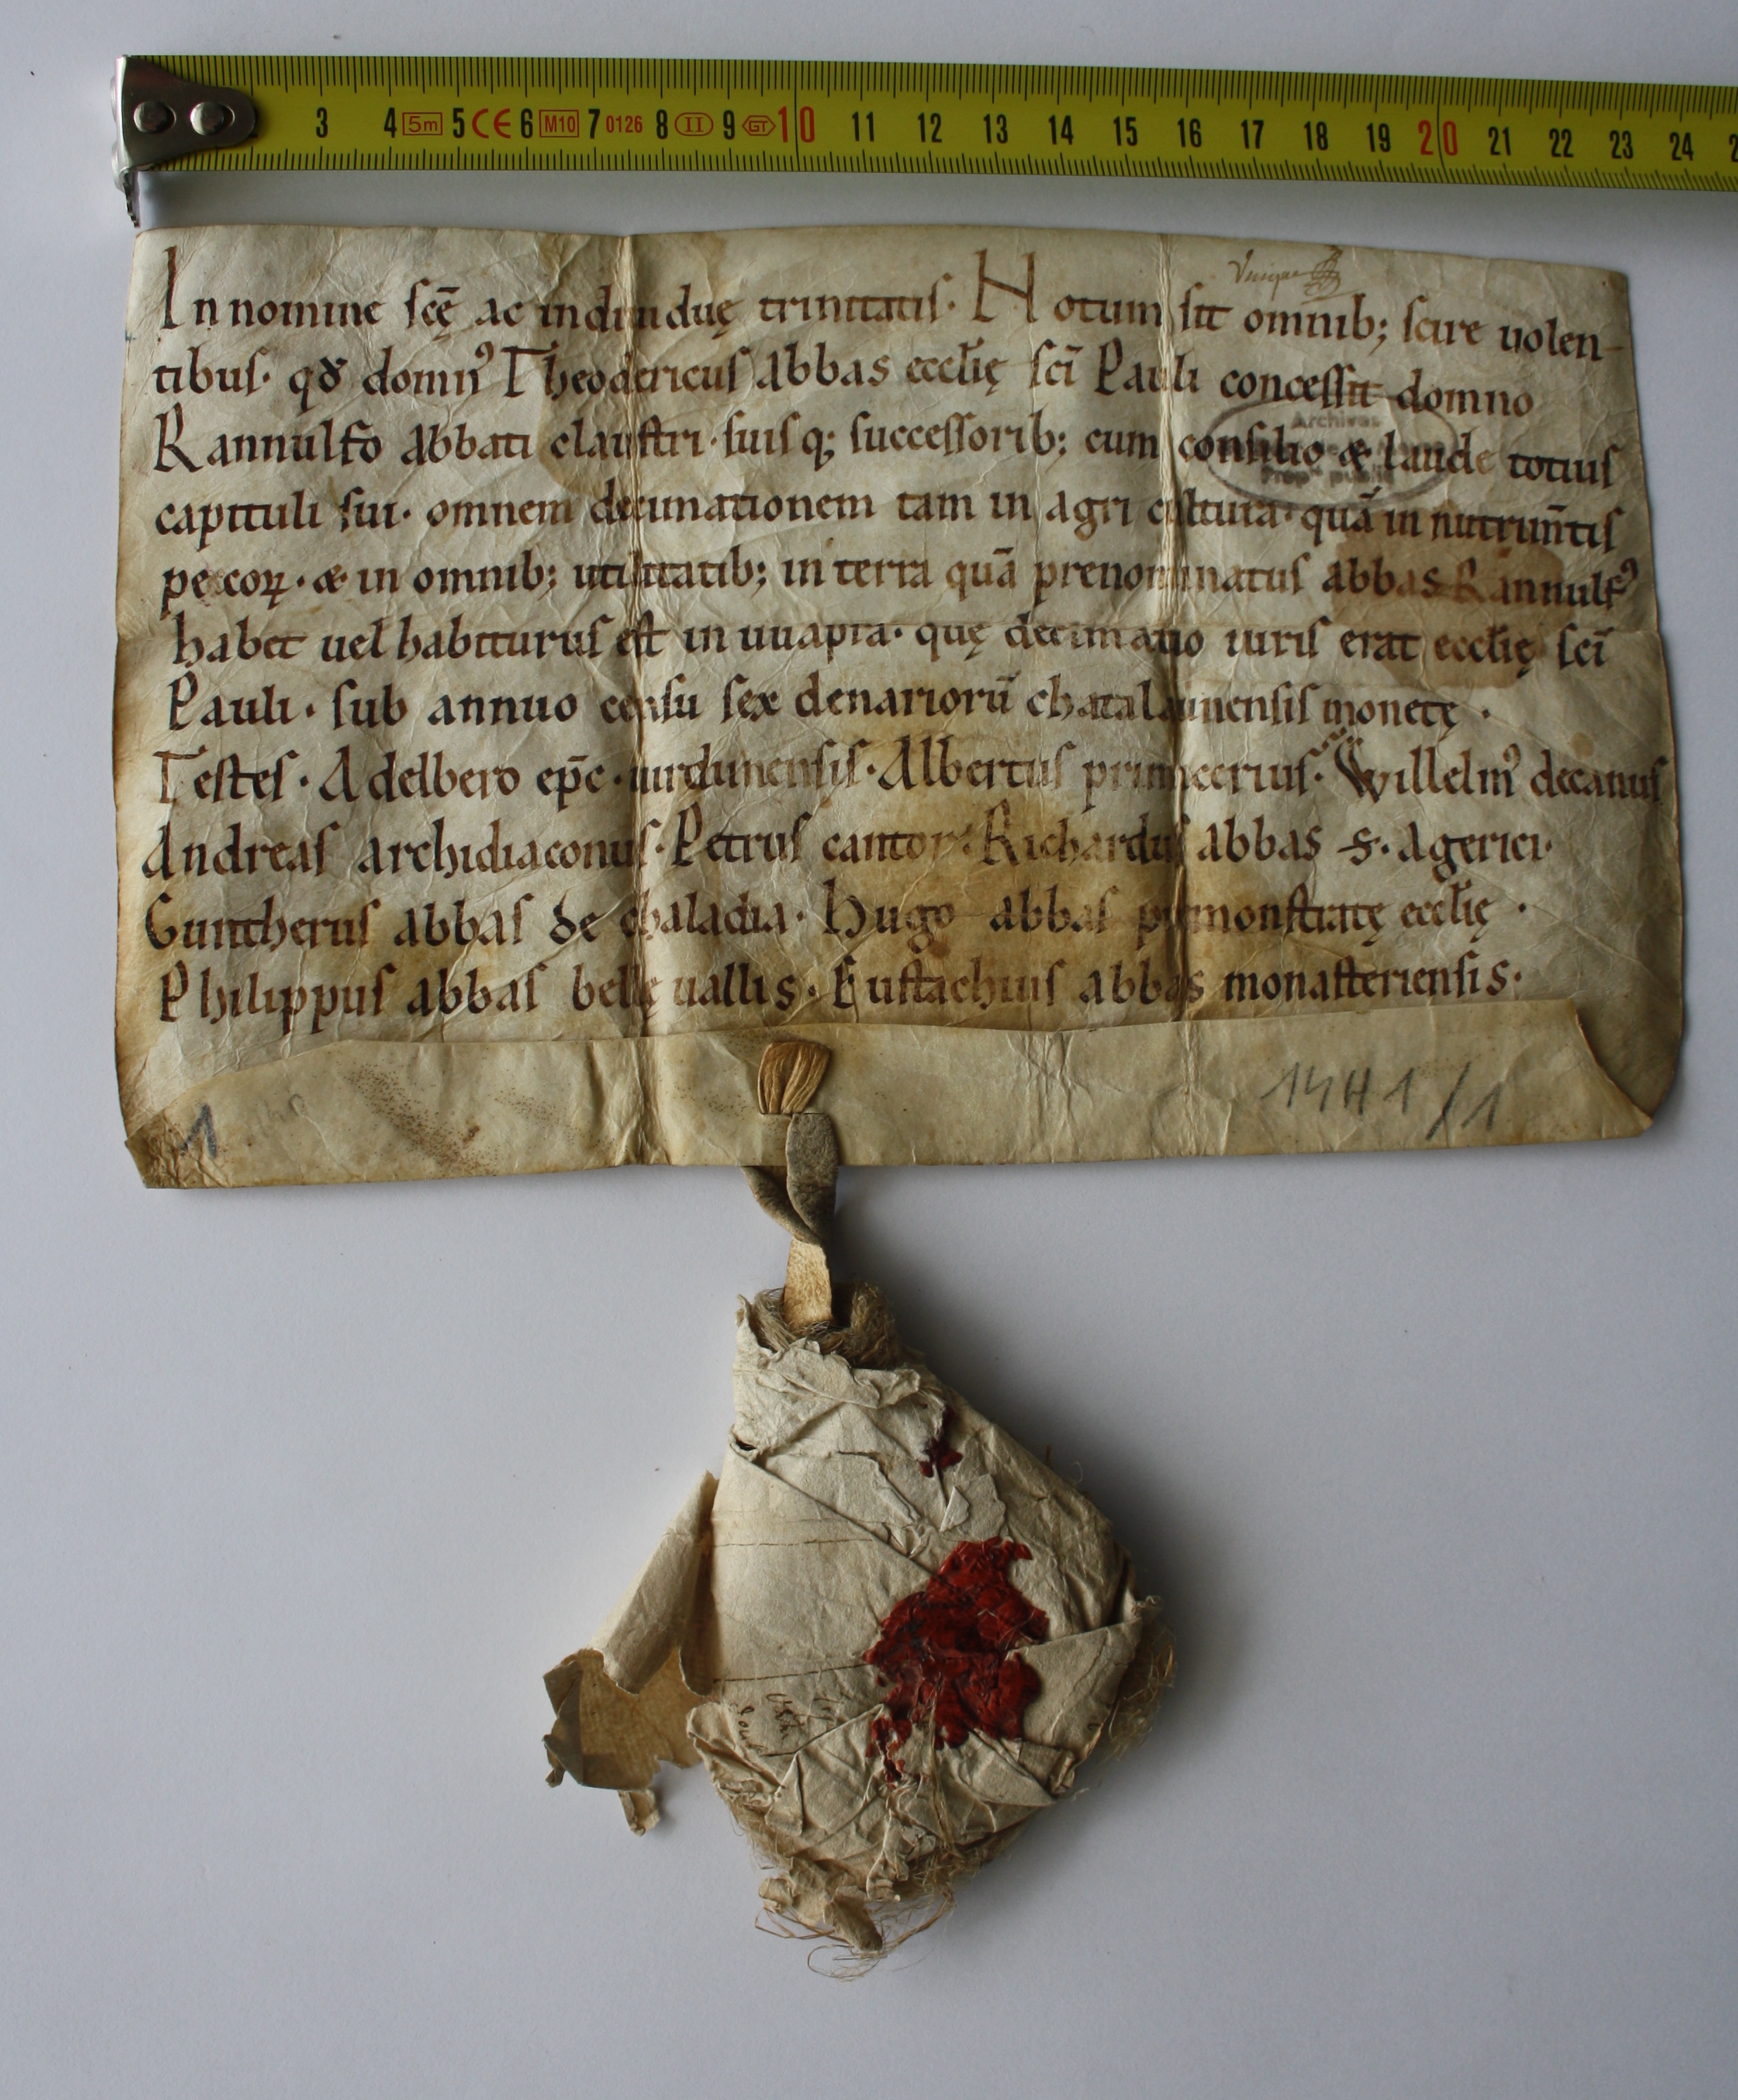 3 4 5m 5 CE 6 M10 7 0126 8 II 9 GT 10 11 12 13 14 15 16 17 18 19 20 21 22 23 24
In nomine scę̄ ac indiuiduę trinitatis· Notum sit omnib; scire uolen-
tibus· qđ domnꝰ Theodericus abbas eccl̄ię sc̄i Pauli concessit domno
Rannulfo abbati claustri· suisq; successorib; cum consilio & laude totius
capituli sui· omnem decimationem tam in agri cultura· quā in nutrim̄tis
pecoꝝ· & in omnib; utilitatib; in terra quā prenominatus abbas Rannulfꝰ
habet uel habiturus est in uuapra· quę decimatio iuris erat eccl̄ię sc̄i
Pauli· sub annuo censu sex denariorū chatalaunensis monetę·
Testes· Adelbero ep̄c uirdunensis· Albertus primicerius· Willelmꝰ decanus
Andreas archidiaconus· Petrus cantor· Richardus abbas S· Agerici·
Guntherus abbas de chaladia· Hugo abbas p̄monstratę eccl̄ię·
Philippus abbas bellę uallis· Eustachius abbas monasteriensis·
Archives
1
14H1/1